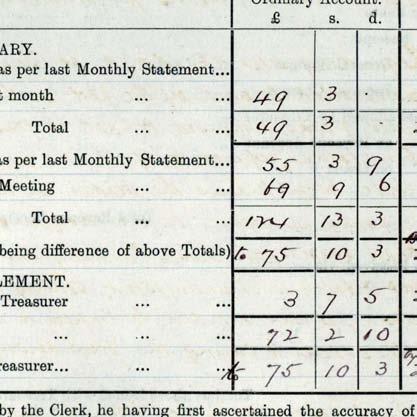 Ordinary Account.
£ s. d.
ARY.
as per last Monthly Statement...
t month ... ... 49 3
Total ... ... 49 3
as per last Monthly Statement... 55 3 9
Meeting ... ... 69 9 6
Total ... ... 124 13 3
being difference of above Totals) 75 10 3
LEMENT.
Treasurer ... ... 3 7 5
... ... 72 2 10
reasurer... ... ... 75 10 3
by the Clerk, he having first ascertained the accuracy of